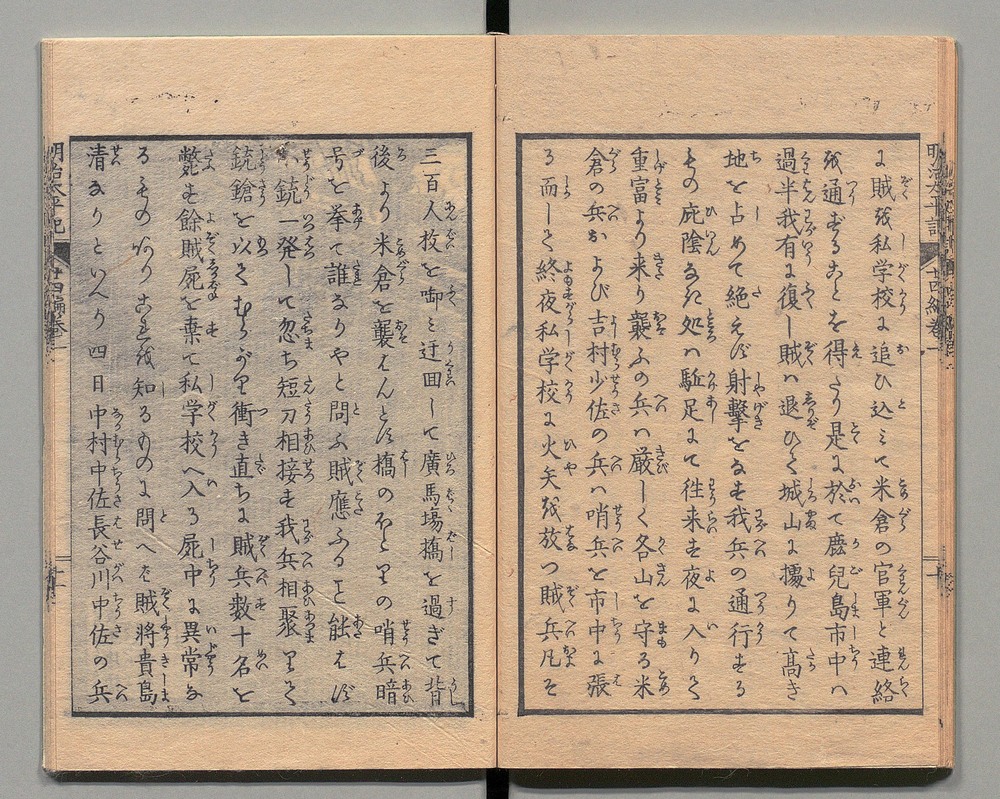 に賊を私学校に追ひ込みて米倉の官軍と連絡
を通ずることを得たり是に於て鹿児島市中ハ
過半我有に復し賊ハ退ひて城山に攓りて高き
地を占めて絶えず射撃をなせ我兵の通行する
もの庇陰なき処ハ駈足にて往来す夜に入りて
重富より来り襲ふの兵ハ厳しく各山を守る米
倉の兵および吉村少佐の兵ハ哨兵を市中に張
る而して終夜私学校に火矢を放つ賊兵凡そ
三百人枚を啣ミ迂回して廣馬場橋を過ぎて背
後より米倉を襲はんとす橋のほとりの哨兵暗
号を挙て誰なりやと問ふ賊應ふると能はず
銃一発して忽ち短刀相接す我兵相聚りて
銃鎗を以てむらがり衝き直ちに賊兵数十名を
斃す餘賊屍を棄て私学校へ入る屍中に異常な
るもの有りこれを知るものに問へば賊将貴島
清なりといへり四日中村中佐長谷川中佐の兵
明治太平記
廿四編巻一
十一